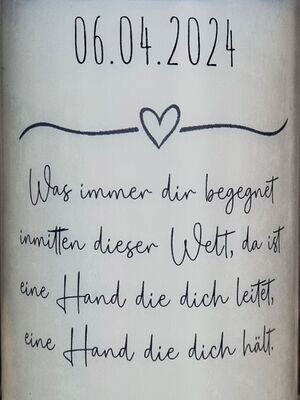 06.04.2024
Was immer dir begegnet
inmitten dieser Welt, da ist
eine Hand die dich leitet,
eine Hand die dich hält.